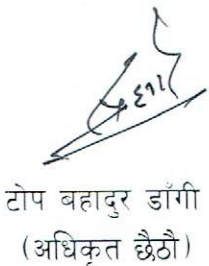 टोप बहादुर डाँगी
(अधिकृत छैठौ)